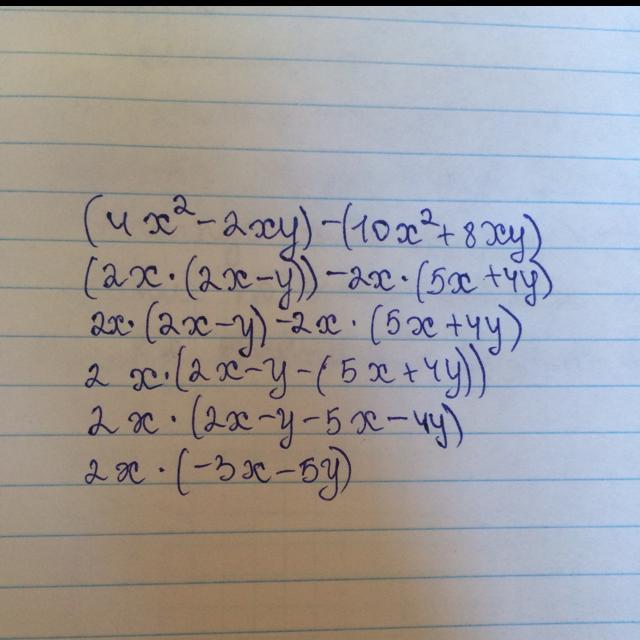 (4x²-2xy)-(10x²+8xy)
(2x·(2x-y))-2x·(5x+4y)
2x·(2x-y)-2x·(5x+4y)
2x·(2x-y-(5x+4y))
2x·(2x-y-5x-4y)
2x·(-3x-5y)